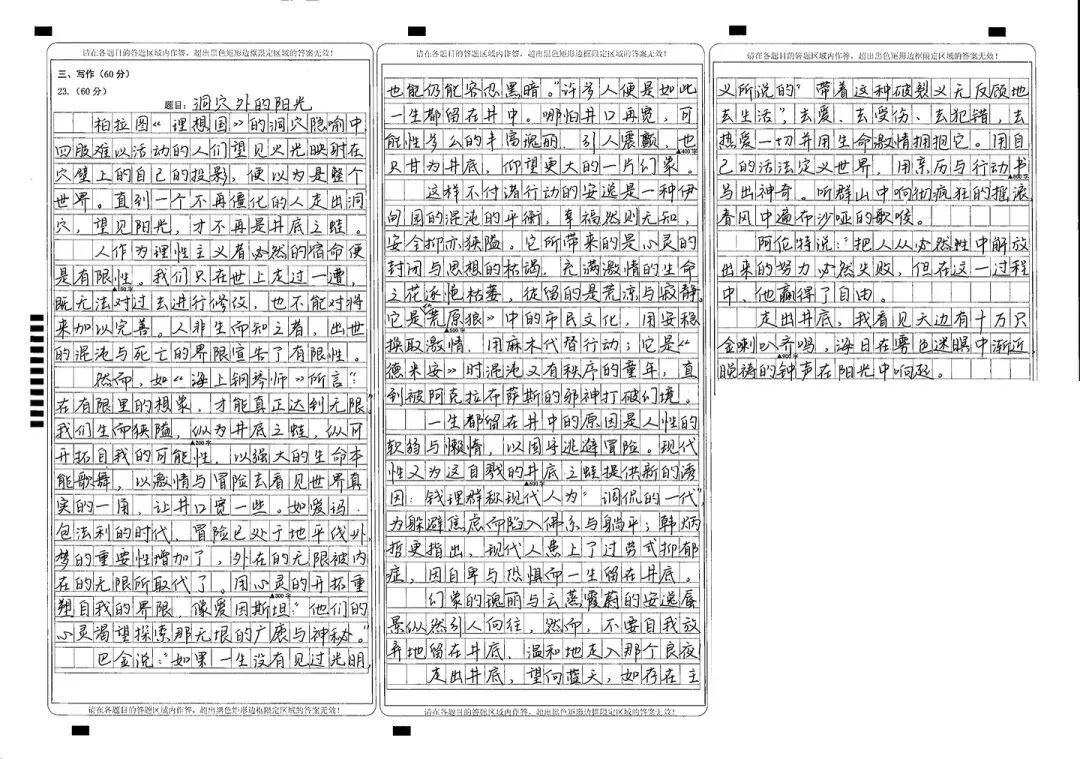 请在各题目的答题区域内作答，超出黑色矩形边框限定区域的答案无效！
三、写作（60 分）
23.（60 分）
题目：洞穴外的阳光
柏拉图《理想国》的洞穴隐喻中，
四肢难以活动的人们望见火光映射在
穴壁上的自己的投影，便以为是整个
世界。直到一个不再僵化的人走出洞
穴，望见阳光，才不再是井底之蛙。
人作为理性主义者必然的宿命便
是有限性。我们只在世上走过一遭，
▲100 字
既无法对过去进行修改，也不能对将
来加以完善。人非生而知之者，出世
的混沌与死亡的界限宣告了有限性。
然而，如《海上钢琴师》所言：
在有限里的想象，才能真正达到无限，
我们生而狭隘，纵为井底之蛙，纵可
▲200 字
开拓自我的可能性，以强大的生命本
能歌舞，以激情与冒险去看见世界真
实的一角，让井口宽一些。如爱玛·
包法利的时代，冒险已处于地平线外，
梦的重要性增加了，外在的无限被内
在的无限所取代了。用心灵的开拓重
▲300 字
塑自我的界限，像爱因斯坦：“他们的
心灵渴望探索那无垠的广袤与神秘。”
巴金说：“如果一生没有见过光明，
请在各题目的答题区域内作答，超出黑色矩形边框限定区域的答案无效！
请在各题目的答题区域内作答，超出黑色矩形边框限定区域的答案无效！
也能仍能容忍黑暗。”许多人便是如此
一生都留在井中。哪怕井口再宽，可
能性多么的丰富瑰丽，引人震颤，也
▲400 字
只甘为井底，仰望更大的一片幻象。
这样不付诸行动的安逸是一种伊
甸园的混沌的平衡，幸福然则无知，
安全抑亦狭隘。它所带来的是心灵的
封闭与思想的枯竭，充满激情的生命
之花逐渐枯萎，徒留的是荒凉与寂静。
它是《荒原狼》中的市民文化，用安稳
▲500 字
换取激情，用麻木代替行动；它是《
德米安》时混沌又有秩序的童年，直
到被阿克拉布萨斯的邪神打破幻境。
一生都留在井中的原因是人性的
软弱与懒惰，以固守逃避冒险。现代
性又为这自戮的井底之蛙提供新的诱
▲600 字
因：钱理群称现代人为“调侃的一代”，
为躲避焦虑而陷入佛系与躺平；韩炳
哲更指出，现代人患上了过劳式抑郁
症，因自卑与恐惧而一生留在井底。
幻象的瑰丽与云蒸霞蔚的安逸蜃
▲700 字
景纵然引人向往，然而，不要自我放
弃地留在井底，温和地走入那个良夜。
走出井底，望向蓝天，如存在主
请在各题目的答题区域内作答，超出黑色矩形边框限定区域的答案无效！
请在各题目的答题区域内作答，超出黑色矩形边框限定区域的答案无效！
义所说的“带着这种破裂义无反顾地
去生活”，去爱、去受伤、去犯错，去
热爱一切并用生命激情拥抱它。用自
己的活法定义世界，用亲历与行动书
▲800 字
写出神奇。听群山中响彻疯狂的摇滚，
春风中遍布沙哑的歌喉。
阿伦特说：“把人从必然性中解放
出来的努力必然失败，但在这一过程
中，他赢得了自由。
走出井底，我看见天边有十万只
▲900 字
金喇叭齐鸣，海日在雾色迷瞑中渐近，
晚祷的钟声在阳光中响起。